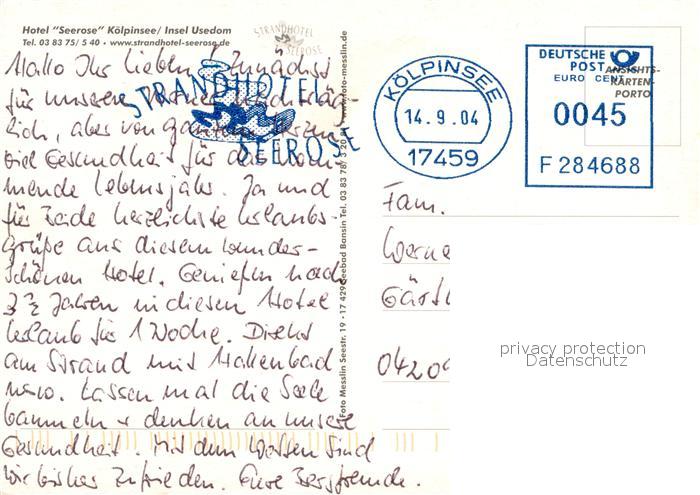 Hotel "Seerose" Kölpinsee/ Insel Usedom
Tel. 03 83 75/ 5 40 • www.strandhotel-seerose.de
STRANDHOTEL
SEEROSE
Hallo Ihr Lieben! Zunächst
für unseren nachträg-
lich, aber von ganzem Herzen
viel Gesundheit für das kom-
mende Lebensjahr. Ja und
für Beide herzlichste Urlaubs-
grüße aus diesem wunder-
schönen Hotel. Genießen nach
3 ½ Jahren in diesen Hotel
Urlaub für 1 Woche. Direkt
am Strand mit Hallenbad
usw. Lassen mal die Seele
baumeln + denken an unsere
Gesundheit. Mit dem Wetter sind
wir bisher zufrieden. Eure Bergfreunde.
STRANDHOTEL
SEEROSE
Foto Messlin Seestr. 19 • 17 429 Seebad Bansin Tel. 03 83 78/ 3 20 www.foto-messlin.de
KÖLPINSEE
14. 9. 04
17459
DEUTSCHE
POST
EURO CENT
0045
F 284688
ANSICHTS-
KARTEN-
PORTO
Fam.
Werne
Gärt
0420
privacy protection
Datenschutz